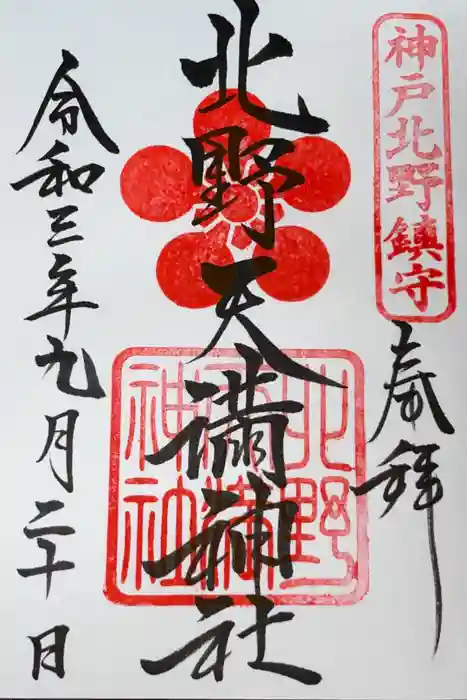 神戸北野鎮守
奉拝
北野天満神社
北野天満神社
令和三年九月二十日